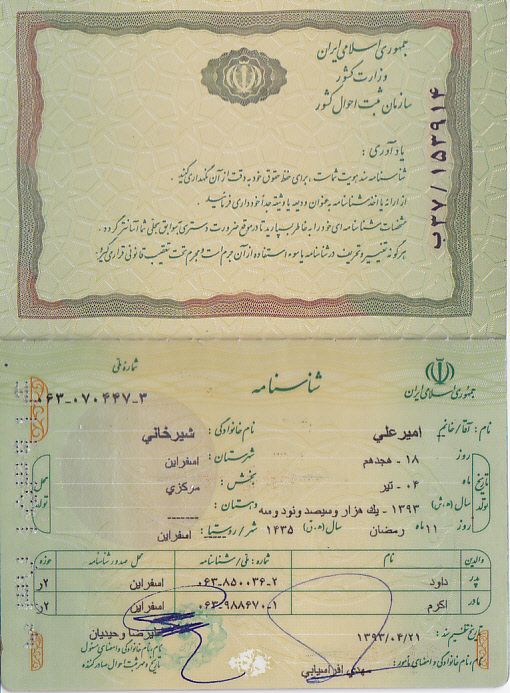 جمهوری اسلامی ایران
وزارت کشور
سازمان ثبت احوال کشور
ب۳۷/۱۵۳۹۱۴
یادآوری :
شناسنامه سند هویت شماست ، برای حفظ حقوق خود به دقت از آن نگهداری کنید .
از ارائه یا اخذ شناسنامه به عنوان ودیعه یا وثیقه جداً خودداری فرمائید .
مشخصات شناسنامه ای خود را به خاطر بسپارید تا در موقع ضرورت دسترسی به سوابق سجلی شما آسانتر گردد .
هرگونه تغییر و تحریف در شناسنامه یا سوء استفاده از آن جرم است و مجرم تحت تعقیب قانونی قرار می گیرد .
جمهوری اسلامی ایران
شناسنامه
شماره ملی
۰۶۳-۰۷۰۴۴۷-۳
نام : آقا/خانم امیرعلي نام خانوادگی : شیرخاني
تاریخ تولد
روز ۱۸ - هجدهم شهرستان : اسفراین
ماه ۰۴ - تیر بخش : مرکزي
سال (ه.ش) ۱۳۹۳ - یك هزار وسیصد ونود وسه دهستان : -------
روز ۱۱ ماه رمضان سال (ه.ق) ۱۴۳۵ شهر / روستا : اسفراین
محل تولد
والدین نام شماره : ملی / شناسنامه محل صدور شناسنامه حوزه
پدر داود ۰۶۳-۸۵۰۰۳۶-۲ اسفراین ۲ر
مادر اکرم ۰۶۳-۹۸۸۶۷۰-۱ اسفراین ۲ر
تاریخ تنظیم سند : ۱۳۹۳/۰۴/۲۱ علیرضا وحیدیان
نام ، نام خانوادگی و امضای مأمور : مهدي افراسیابي
نام ، نام خانوادگی و امضای مسئول
تاریخ و مهر ثبت احوال صادر کننده